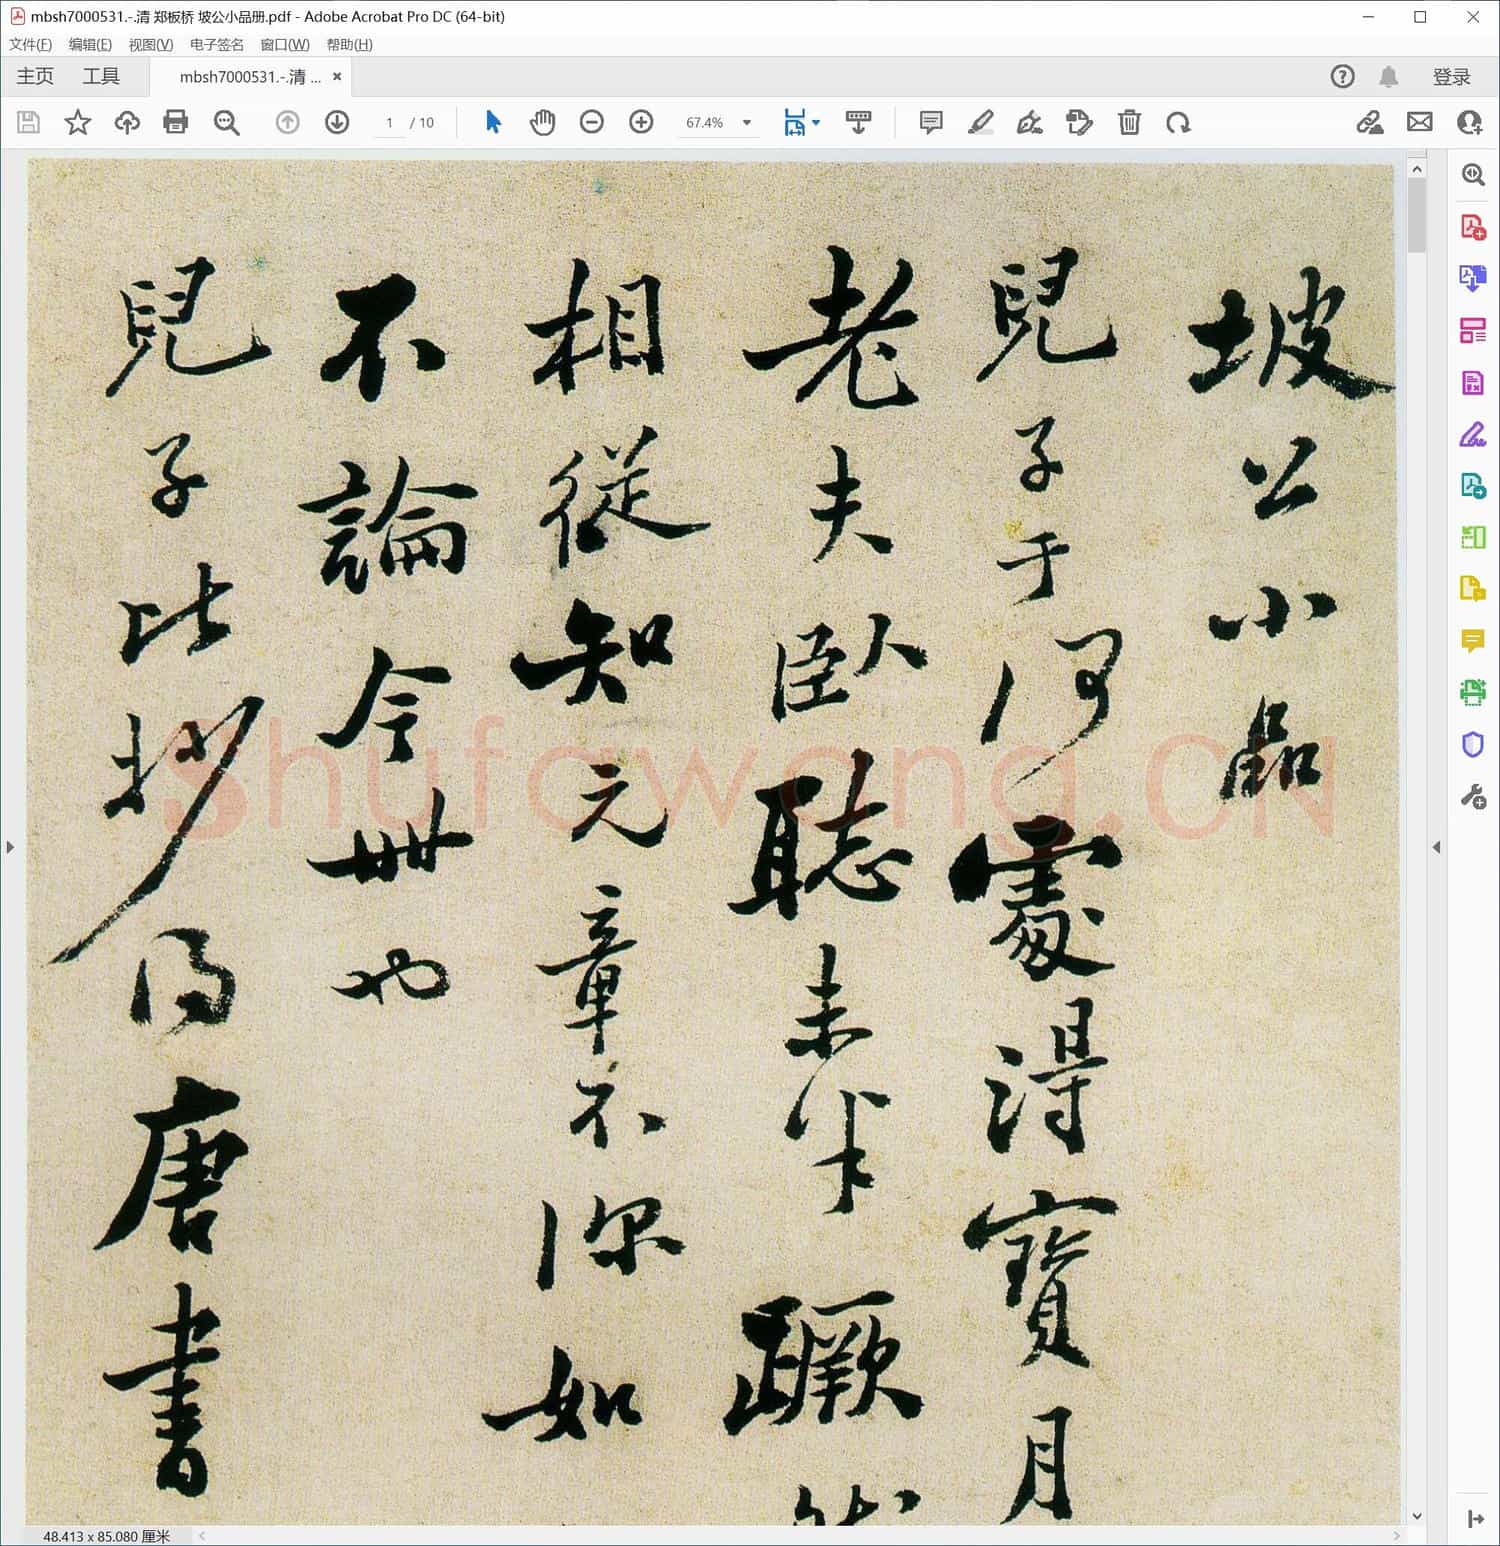 mbsh7000531.-.清 郑板桥 坡公小品册.pdf - Adobe Acrobat Pro DC (64-bit)
文件(F) 编辑(E) 视图(V) 电子签名 窗口(W) 帮助(H)
主页 工具 mbsh7000531.-.清 ... × 登录
1 / 10 67.4%
坡公小品
兒子于何處得寶月
老夫臥聽未半蹶然
相從知元章不深如
不論今世也
兒子比抄得唐書
Shufawang.CN
48.413 x 85.080 厘米